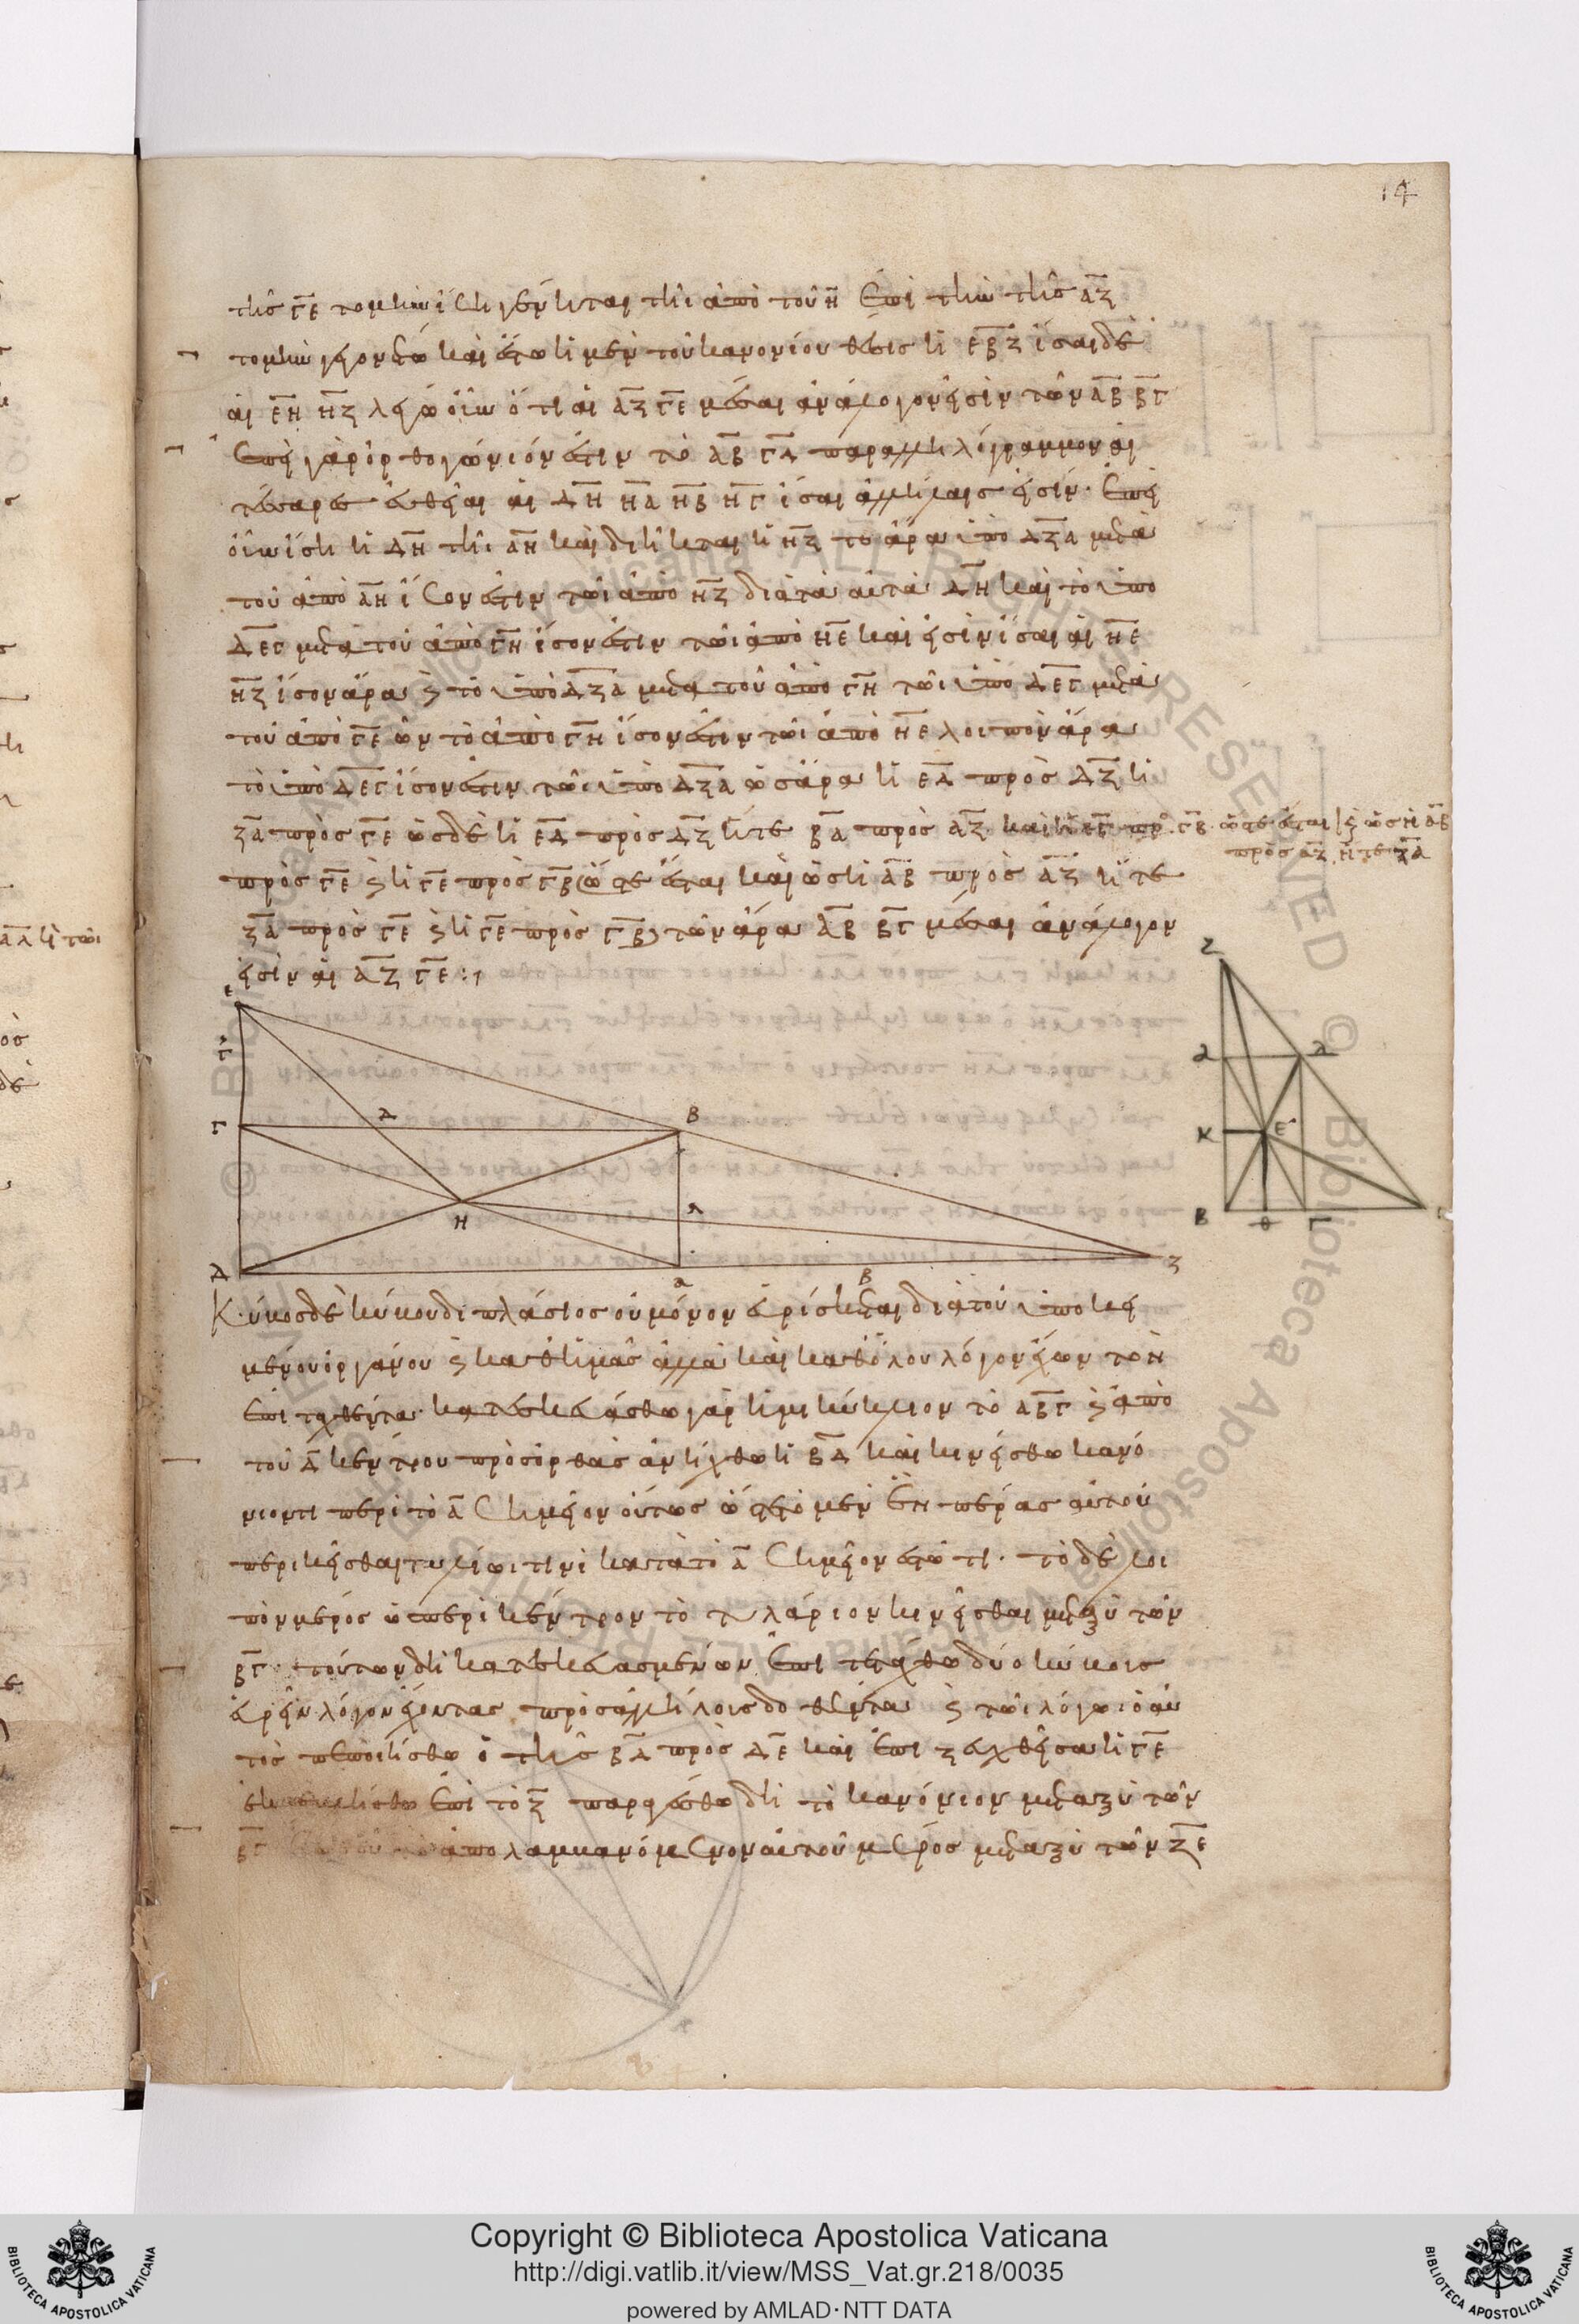 14
τῆς ΓΕ τομὴν ἴση γένηται τῆι ἀπὸ τοῦ Η ἐπὶ τὴν τῆς ΑΖ
τομὴν γεγονέτω καὶ ἔστω ἡ μὲν τοῦ κανονίου θέσις ἡ ΕΒΖ ἴσαι δὲ
αἱ ΕΗ ΗΖ λέγω οὖν ὅτι αἱ ΑΖ ΓΕ μέσαι ἀνάλογον εἰσὶν τῶν ΑΒ ΒΓ
ἐπεὶ γὰρ ὀρθογώνιόν ἐστιν τὸ ΑΒ ΓΔ παραλληλόγραμμον αἱ
τέσσαρες εὐθεῖαι αἱ ΔΗ ΗΑ ΗΒ ΗΓ ἴσαι ἀλλήλαις εἰσίν. ἐπεὶ
οὖν ἴση ἡ ΔΗ τῆι ΑΗ καὶ διῆκται ἡ ΗΖ τὸ ἄρα ὑπὸ ΔΖΑ μετὰ
τοῦ ἀπὸ ΑΗ ἴσον ἐστὶν τῶι ἀπὸ ΗΖ διὰ τὰ αὐτὰ ΔΗ καὶ τὸ ὑπὸ
ΔΕΓ μετὰ τοῦ ἀπὸ ΓΗ ἴσον ἐστὶν τῶι ἀπὸ ΗΕ καὶ εἰσὶν ἴσαι αἱ ΗΕ
ΗΖ ἴσον ἄρα καὶ τὸ ὑπὸ ΔΖΑ μετὰ τοῦ ἀπὸ ΓΗ τῶι ὑπὸ ΔΕΓ μετὰ
τοῦ ἀπὸ ΓΕ ὧν τὸ ἀπὸ ΓΗ ἴσον ἐστὶν τῶι ἀπὸ ΗΕ λοιπὸν ἄρα
τὸ ὑπὸ ΔΕΓ ἴσον ἐστὶν τῶι ὑπὸ ΔΖΑ ὡς ἄρα ἡ ΕΔ πρὸς ΔΖ ἡ
ΖΑ πρὸς ΓΕ ὡς δὲ ἡ ΕΔ πρὸς ΔΖ ἥ τε ΒΑ πρὸς ΑΖ καὶ ἡ ΕΓ πρὸς ΓΒ ὥστε ἔσται καὶ ὡς ἡ ΑΒ
πρὸς ΑΖ ἥ τε ΖΑ
πρὸς ΓΕ καὶ ἡ ΓΕ πρὸς ΓΒ ὥστε ἔσται καὶ ὡς ἡ ΑΒ πρὸς ΑΖ ἥ τε
ΖΑ πρὸς ΓΕ καὶ ἡ ΓΕ πρὸς ΓΒ τῶν ἄρα ΑΒ ΒΓ μέσαι ἀνάλογον
εἰσὶν αἱ ΑΖ ΓΕ :
Γ Δ Β
Η Λ
Δ α Β Ζ
Ζ
Κ Ε
Β Θ Γ
Κύβος δὲ κύβου διπλάσιος οὐ μόνον εὑρίσκεται διὰ τοῦ ὑποκει
μένου ὀργάνου καὶ καθ ἡμᾶς ἀλλὰ καὶ καθόλου λόγον ἔχων τὸν
ἐπιταχθέντα κατεσκευάσθω γὰρ ἡμικύκλιον τὸ ΑΒΓ καὶ ἀπὸ
τοῦ Δ κέντρου πρὸς ὀρθὰς ἀνήχθω ἡ ΒΔ καὶ κινείσθω κανό
νιόν τι περὶ τὸ Α σημεῖον οὕτως ὥστε τὸ μὲν ἓν πέρας αὐτοῦ
περικεῖσθαι τυλίωι τινὶ κατὰ τὸ Α σημεῖον ἑστῶτι. τὸ δὲ λοι
πὸν μέρος ὡς περὶ κέντρον τὸ τυλάριον κινεῖσθαι μεταξὺ τῶν
ΒΓ τούτων δὴ κατεσκευασμένων ἐπιτετάχθω δύο κύβους
εὑρεῖν λόγον ἔχοντας πρὸς ἀλλήλους δοθέντα καὶ τῶι λόγωι ὁ αὐ
τὸς πεποιήσθω ὁ τῆς ΒΔ πρὸς ΔΕ καὶ ἐπιζευχθεῖσα ἡ ΓΕ
ἐκβεβλήσθω ἐπὶ τὸ Ζ παραγέσθω δὴ τὸ κανόνιον μεταξὺ τῶν
ΒΓ ἀπολαμβανόμενον αὐτοῦ μέρος μεταξὺ τῶν ΖΕ
Copyright © Biblioteca Apostolica Vaticana
http://digi.vatlib.it/view/MSS_Vat.gr.218/0035
powered by AMLAD·NTT DATA